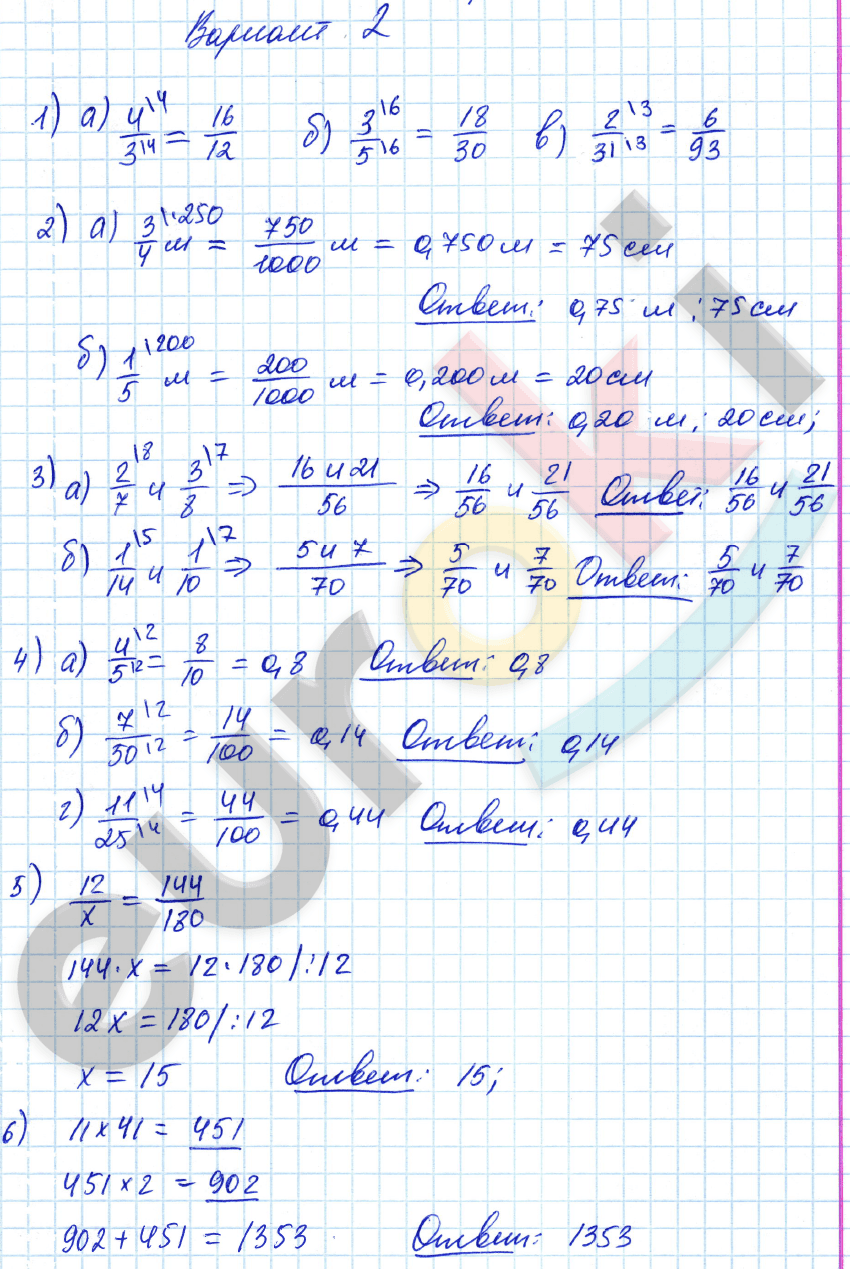 Вариант 2
1) а) 4\4/3\4 = 16/12 б) 3\6/5\6 = 18/30 в) 2\3/31\3 = 6/93
2) а) 3\·250/4 м = 750/1000 м = 0,750 м = 75 см
Ответ: 0,75 м ; 75 см
б) 1\200/5 м = 200/1000 м = 0,200 м = 20 см
Ответ: 0,20 м ; 20 см;
3) а) 2\8/7 и 3\7/8 => 16 и 21/56 => 16/56 и 21/56 Ответ: 16/56 и 21/56
б) 1\5/14 и 1\7/10 => 5 и 7/70 => 5/70 и 7/70 Ответ: 5/70 и 7/70
4) а) 4\2/5\2 = 8/10 = 0,8 Ответ: 0,8
б) 7\2/50\2 = 14/100 = 0,14 Ответ: 0,14
г) 11\4/25\4 = 44/100 = 0,44 Ответ: 0,44
5) 12/x = 144/180
144·x = 12·180 /:12
12x = 180 /:12
x = 15 Ответ: 15;
6) 11×41 = 451
451×2 = 902
902+451 = 1353 Ответ: 1353
euroki